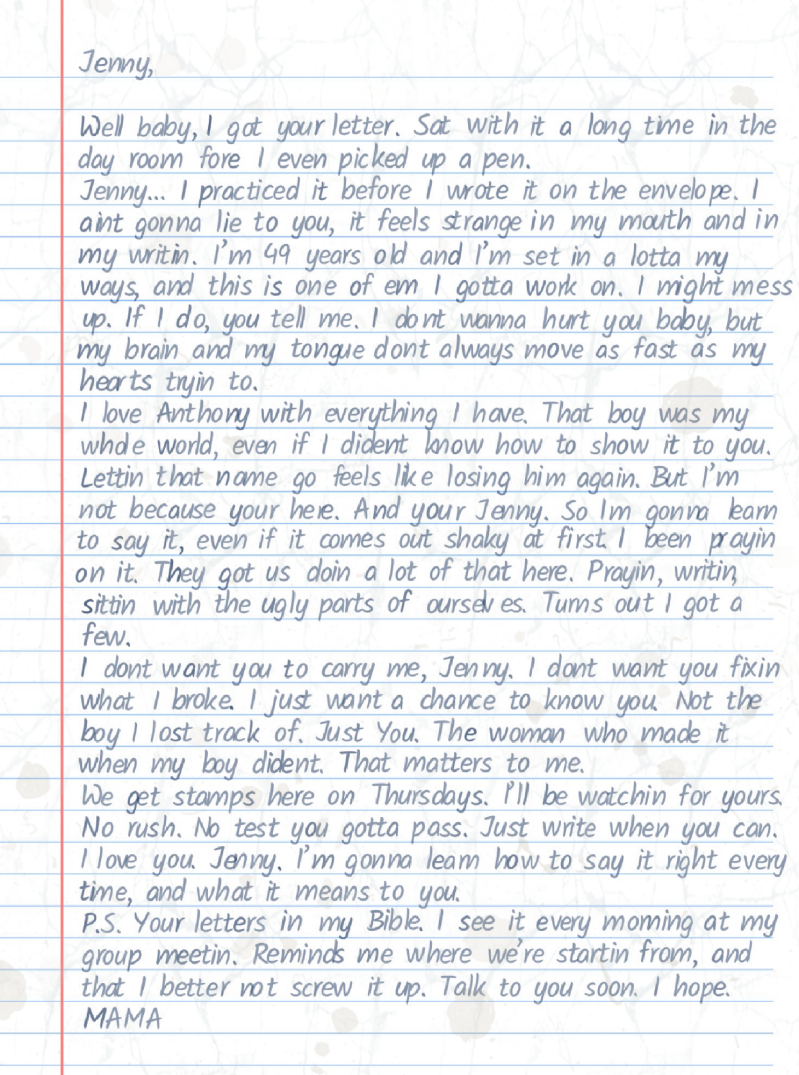 Jenny,
Well baby, I got your letter. Sat with it a long time in the
day room fore I even picked up a pen.
Jenny... I practiced it before I wrote it on the envelope. I
aint gonna lie to you, it feels strange in my mouth and in
my writin. I'm 49 years old and I'm set in a lotta my
ways, and this is one of em I gotta work on. I might mess
up. If I do, you tell me. I dont wanna hurt you baby, but
my brain and my tongue dont always move as fast as my
hearts tryin to.
I love Anthony with everything I have. That boy was my
whole world, even if I dident know how to show it to you.
Lettin that name go feels like losing him again. But I'm
not because your here. And your Jenny. So Im gonna learn
to say it, even if it comes out shaky at first. I been prayin
on it. They got us doin a lot of that here. Prayin, writin,
sittin with the ugly parts of ourselves. Turns out I got a
few.
I dont want you to carry me, Jenny. I dont want you fixin
what I broke. I just want a chance to know you. Not the
boy I lost track of. Just You. The woman who made it
when my boy dident. That matters to me.
We get stamps here on Thursdays. I'll be watchin for yours.
No rush. No test you gotta pass. Just write when you can.
I love you. Jenny. I'm gonna learn how to say it right every
time, and what it means to you.
P.S. Your letters in my Bible. I see it every morning at my
group meetin. Reminds me where we're startin from, and
that I better not screw it up. Talk to you soon. I hope.
MAMA